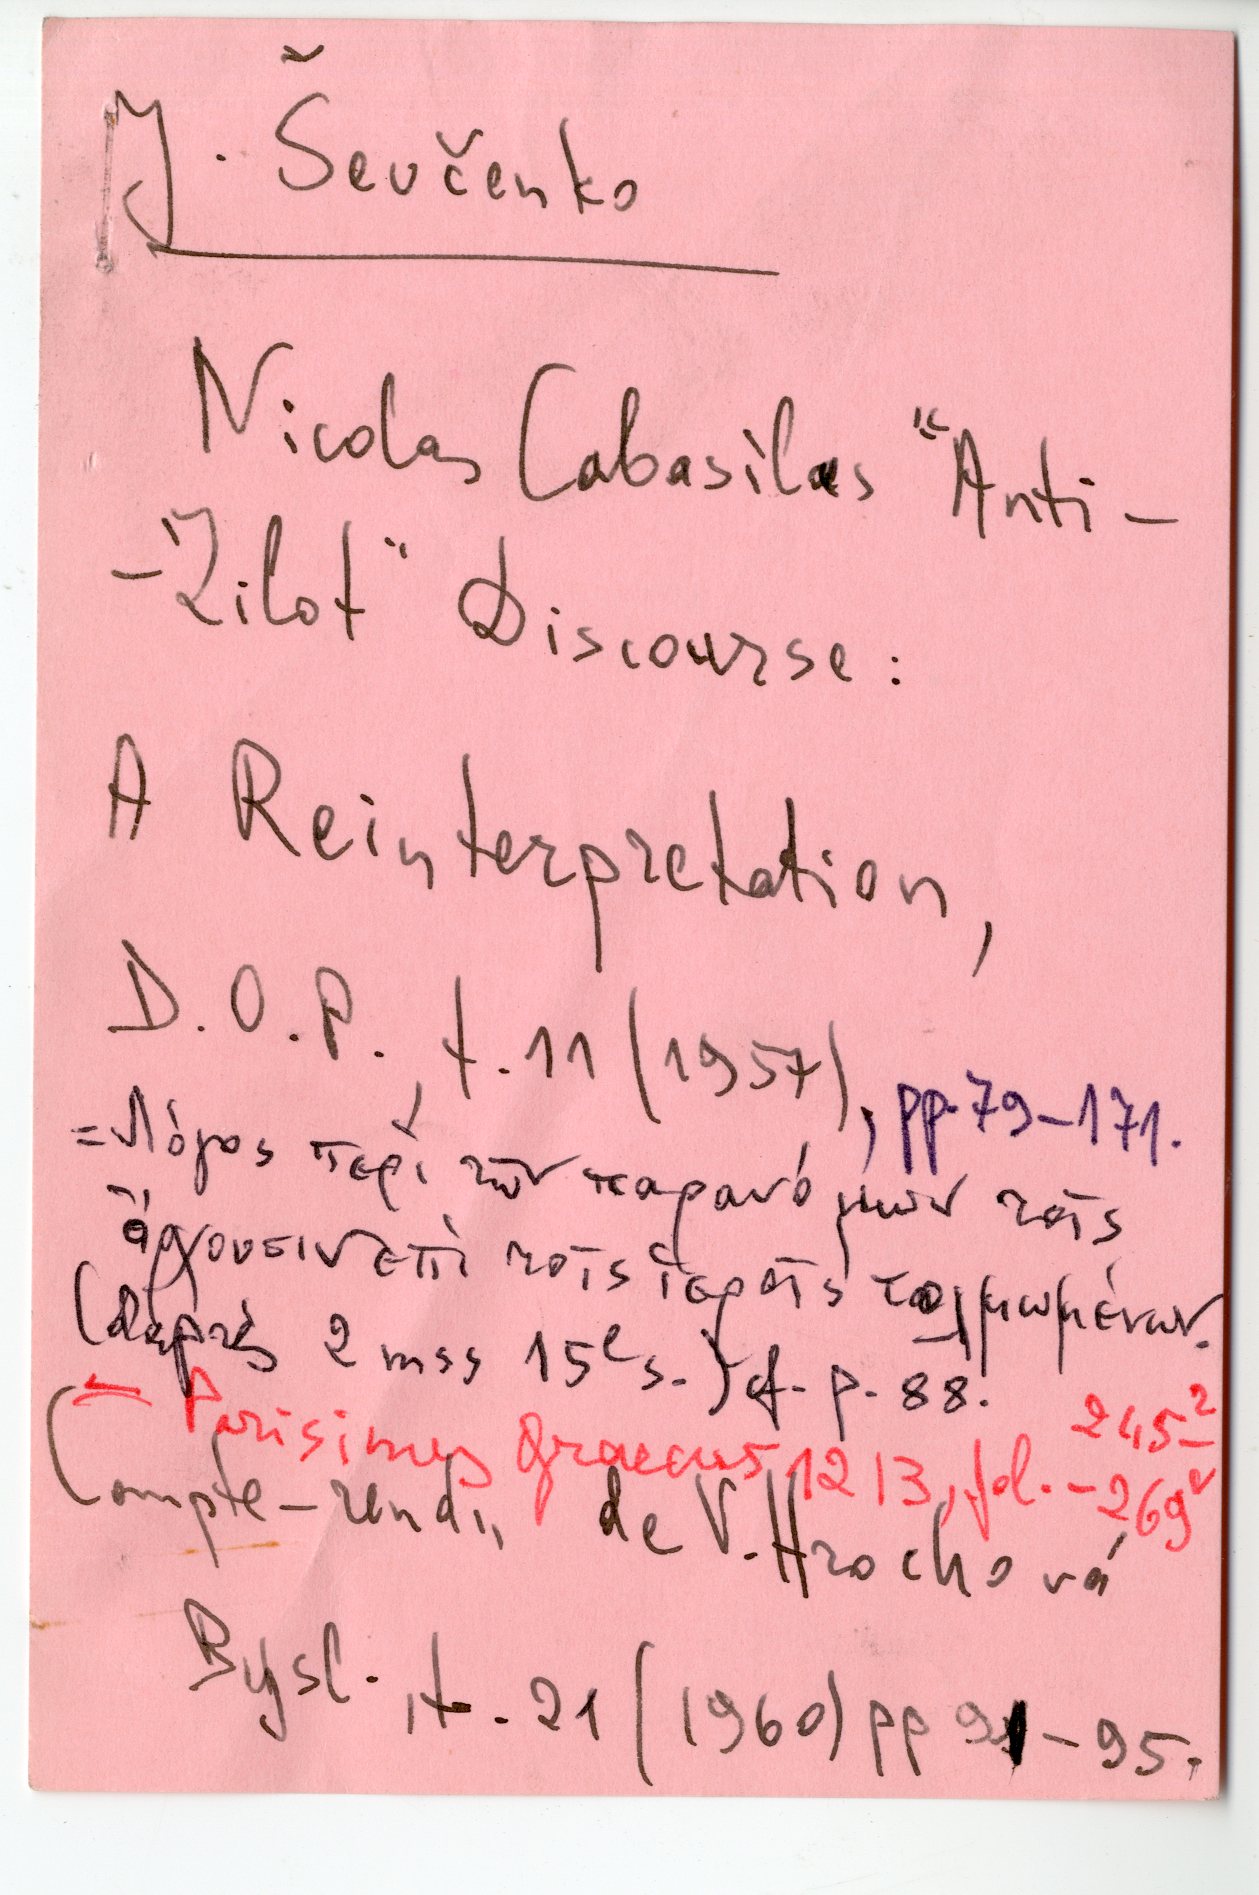 J. Ševčenko
Nicolas Cabasilas "Anti-
-Zilot" Discourse:
A Reinterpretation,
D.O.P., t. 11 (1957), pp. 79-171.
= Λόγος περὶ τῶν παρανόμων τοῖς
ἄρχουσιν ἐπὶ τοῖς ἱεροῖς τολμωμένων.
(d'après 2 mss 15e s.) cf. p. 88.
Parisinus graecus 1213, fol. 245r-
-269v
Compte-rendu de V. Hrochová
Bysl., t. 21 (1960) pp 91-95.